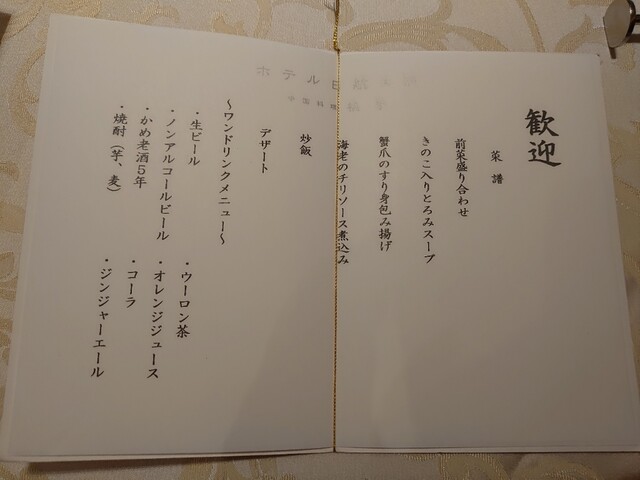 歓迎
菜譜
前菜盛り合わせ
きのこ入りとろみスープ
蟹爪のすり身包み揚げ
海老のチリソース煮込み
炒飯
デザート
～ワンドリンクメニュー～
・生ビール
・ノンアルコールビール
・かめ老酒5年
・焼酎（芋、麦）
・ウーロン茶
・オレンジジュース
・コーラ
・ジンジャーエール
ホテル日航
中国料理